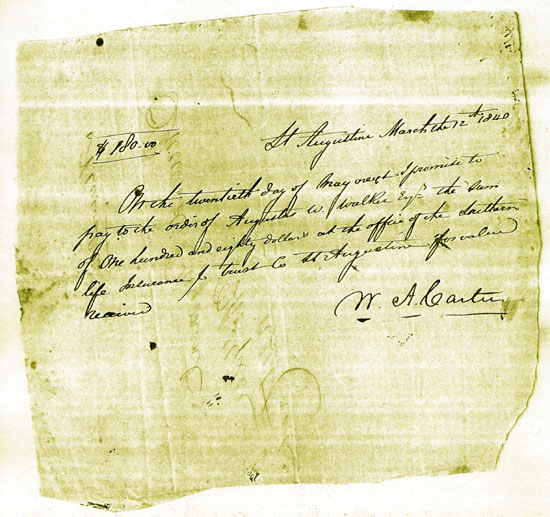 $180.00
St Augustine March the 12th 1840
On the twentieth day of May next I promise to
pay to the order of Augustus W. Walker Esqr the sum
of One hundred and eighty dollars at the office of the Southern
life Insurance & trust Co St Augustine for value
received
W. A. Carter